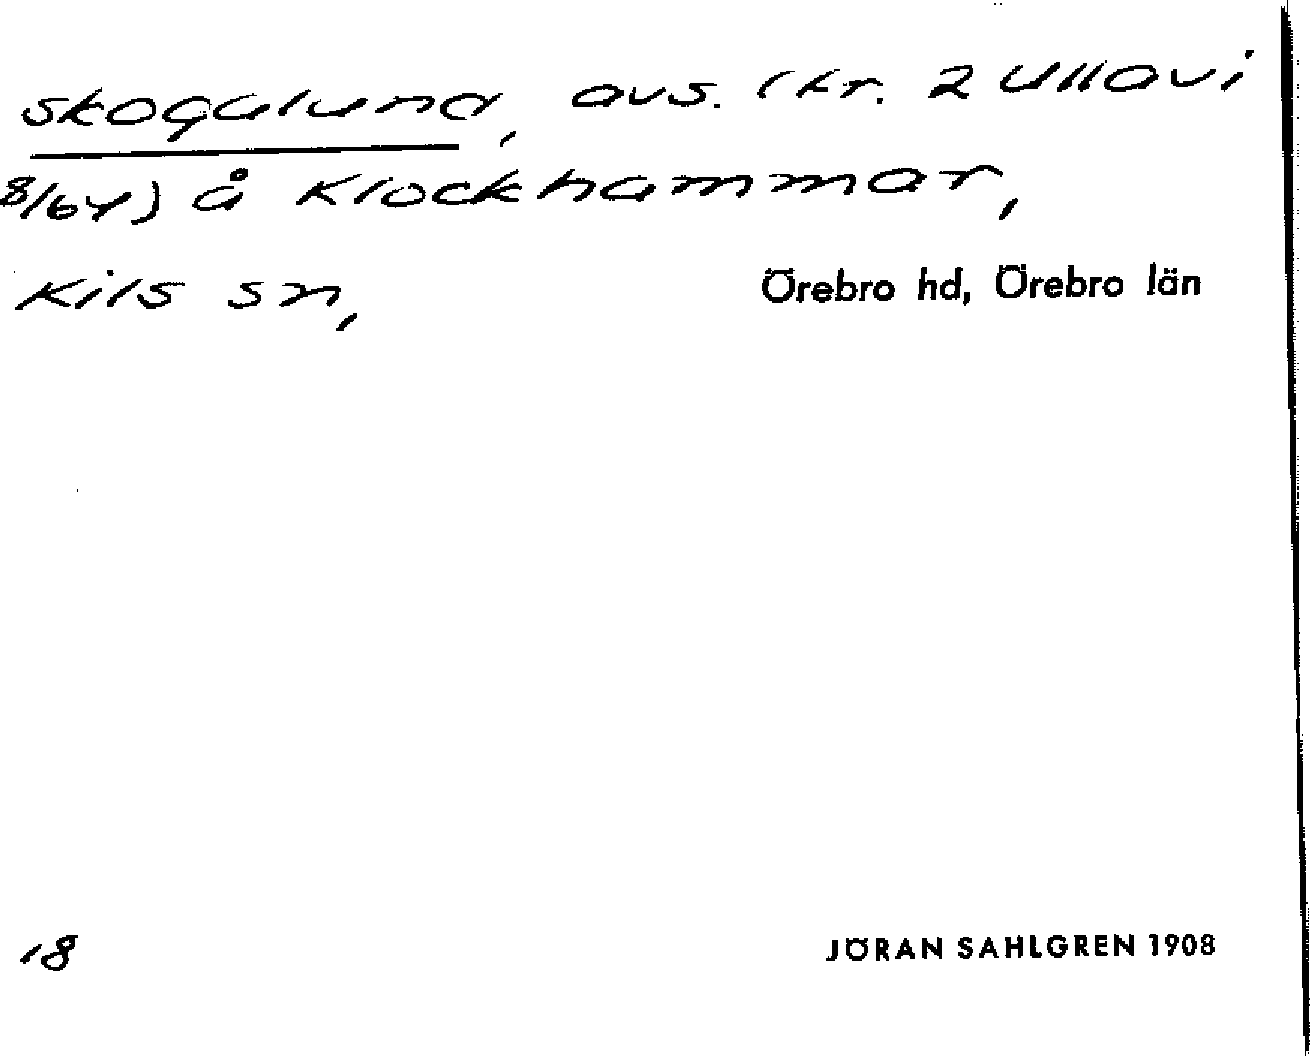 Skogalund, avs. (kr. 2 Ullavi
8/64) å Klockhammar,
Kils sn, Örebro hd, Örebro län
18 JÖRAN SAHLGREN 1908